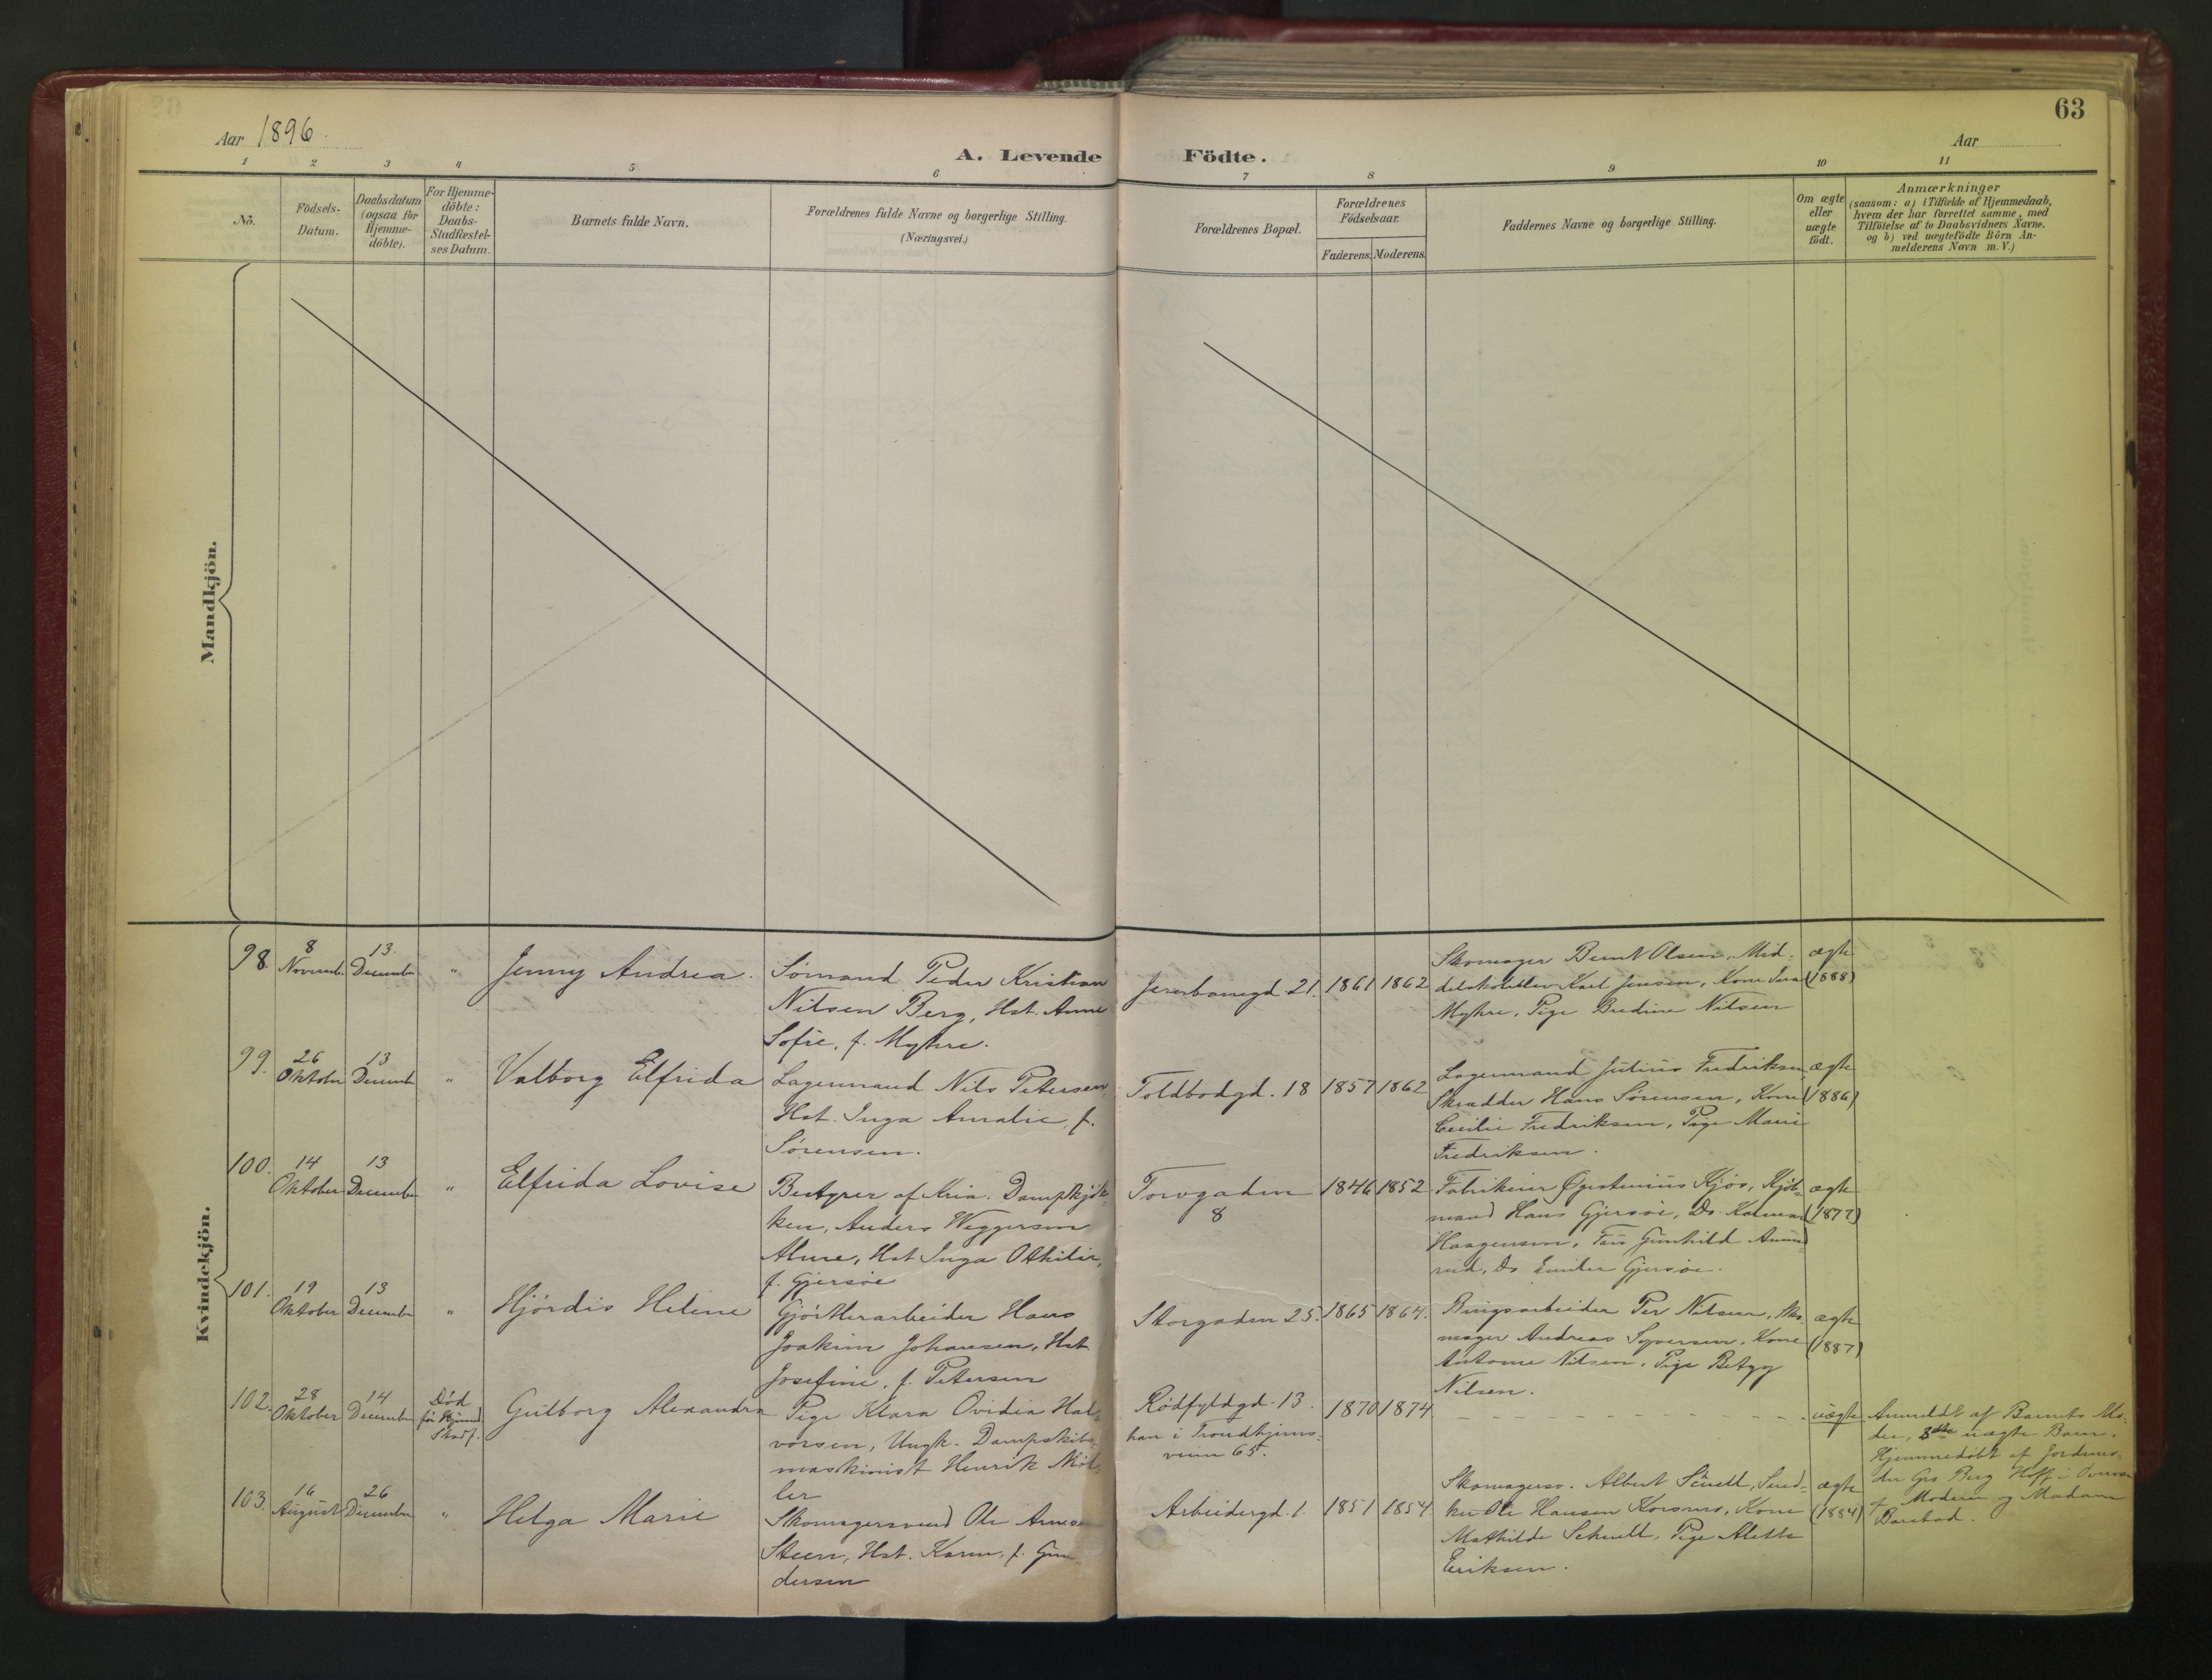 63
Aar 1896.
Aar
A. Levende Födte.
1 2 3 4 5 6 7 8 9 10 11
No.
Födsels-
Datum.
Daabsdatum
(ogsaa for
Hjemme-
döbte).
For Hjemme-
döbte:
Daabs-
Stadfæstel-
ses Datum.
Barnets fulde Navn.
Forældrenes fulde Navne og borgerlige Stilling.
(Næringsvei.)
Forældrenes Bopæl.
Forældrenes
Födselsaar.
Faderens. Moderens.
Faddernes Navne og borgerlige Stilling.
Om ægte
eller
uægte
födt.
Anmærkninger
(saasom: a) i Tilfælde af Hjemmedaab,
hvem der har forrettet samme, med
Tilföielse af to Daabsvidners Navne.
og b) ved uægtefödte Börn An-
melderens Navn m.V.)
Mandkjön.
Kvindekjön.
98.
8
Novemb.
13.
December
"
Jenny Andrea.
Sömand Peder Kristian
Nilsen Berg, Hst. Anne
Sofie, f. Myhre.
21. 1861 1862
Skomager Bernt Olsen, Mid-
Karl Jensen, Kone
Myhre, Pige Bredine Nilsen
ægte
(1888)
99.
26
Oktober
13
December
"
Valborg Elfrida
Lagermand Nils Petersen,
Hst. Inga Amalie, f.
Sörensen.
Toldbodgd. 18 1857 1862
Lagermand Julius Fredriksen,
Skrædder Hans Sörensen, Kone
Cecilie Fredriksen, Pige Marie
Fredriksen.
ægte
(1886)
100.
14
Oktober
13
December
"
Elfrida Lovise
Bestyrer af Kria. Dampkjök-
ken, Anders Weggersen
Hst Inga Othilie,
f. Gjersöe
Torvgaden
8
1846 1852
Kjös, Kjöb-
mand Hans Gjersöe, Ds.
Haagensen, Gunhild
rud, Ds Emilie Gjersöe.
ægte
(1877)
101.
19
Oktober
13
December
"
Hjördis Heline
Gjörtlerarbeider Hans
Joakim Johansen, Hst.
Josefine, f. Petersen
Storgaden 25. 1865 1864.
Per Nilsen, Sko-
mager Andreas Syversen, Kone
Antonie Nilsen, Pige Betzy
Nilsen.
ægte
(1887)
102.
28
Oktober
14
December
Död
för Hjemmed.
Stadf.
Gulborg Alexandra
Pige Klara Ovidia Hal-
vorsen, Ungk. Dampskibs-
maskinist Henrik Möl-
ler
Rödfyldgd. 13.
han i Trondhjems-
veien 65.
1870 1874
uægte
Anmeldt af Barnets Mo-
der, 3die uægte Barn.
Hjemmedöbt af Jordemo-
der Gro Berg Hoff i Overvær
af Moderen og Madam
Barstad.
103.
16
August
26
December
"
Helga Marie
Skomagersvend Ole Arnesen
Steen, Hst. Karen, f. Gun-
dersen
Arbeidergd. 1. 1851 1854
Skomagersv. Albert Sned-
ker Ole Hansen Korsnes, Kone
Mathilde Pige Alette
Eriksen.
ægte
(1884)